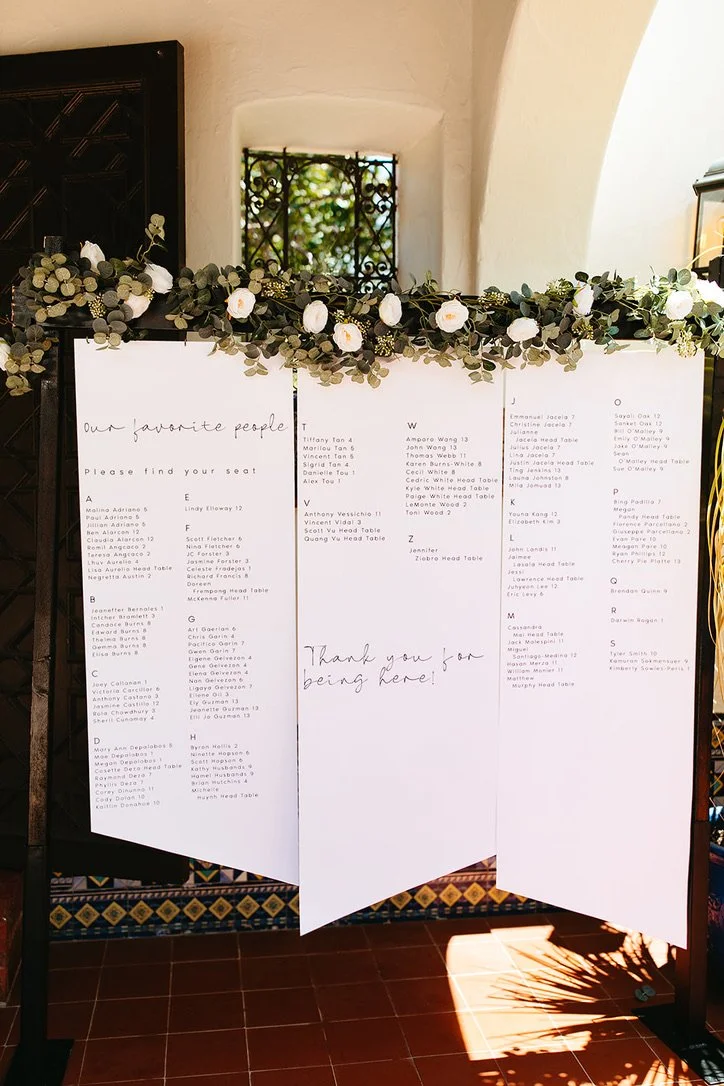 our favorite people
Please find your seat
A
Malina Adriano 5
Paul Adriano 5
Jillian Adriano 5
Ben Alarcon 12
Claudia Alarcon 12
Romil Angcaco 2
Teresa Angcaco 2
Lhuv Aurelio 4
Lisa Aurelio Head Table
Negretta Austin 2
B
Jeaneffer Bernales 1
Intcher Bramlett 3
Candace Burns 8
Edward Burns 8
Thelma Burns 8
Gemma Burns 8
Elisa Burns 8
C
Joey Callanan 1
Victoria Carcillar 6
Anthony Castano 3
Jasmine Castillo 12
Rola Chowdhury 3
Sheril Cunomay 4
D
Mary Ann Depalobos 5
Mae Depalobos 1
Megan Depalobos 1
Cosette Deza Head Table
Raymond Deza 7
Phyllis Deza 7
Corey Dinunno 11
Cody Dolan 10
Kaitlin Donahue 10
E
Lindy Elloway 12
F
Scott Fletcher 6
Nina Fletcher 6
JC Forster 3
Jasmine Forster 3
Celeste Fradejas 1
Richard Francis 8
Doreen
Frempong Head Table
McKenna Fuller 11
G
Art Gaerlan 6
Chris Garin 4
Pacifico Garin 7
Gwen Garin 7
Eigene Gelvezon 4
Gene Gelvezon 4
Elena Gelvezon 4
Nan Gelvezon 6
Ligaya Gelvezon 7
Eilene Gil 3
Ely Guzman 13
Jeanette Guzman 13
Elli Jo Guzman 13
H
Byron Hollis 2
Ninette Hopson 6
Scott Hopson 6
Kathy Husbands 9
Hamel Husbands 9
Brian Hutchins 4
Michelle
Huynh Head Table
T
Tiffany Tan 4
Marilou Tan 5
Vincent Tan 5
Sigrid Tan 4
Danielle Tou 1
Alex Tou 1
V
Anthony Vessichio 11
Vincent Vidal 3
Scott Vu Head Table
Quang Vu Head Table
W
Amparo Wang 13
John Wang 13
Thomas Webb 11
Karen Burns-White 8
Cecil White 8
Cedric White Head Table
Kyle White Head Table
Paige White Head Table
LeMonte Wood 2
Toni Wood 2
Z
Jennifer
Ziobro Head Table
Thank you for
being here!
J
Emmanuel Jacela 7
Christine Jacela 7
Julianne
Jacela Head Table
Julius Jacela 7
Lina Jacela 7
Justin Jacela Head Table
Ting Jenkins 13
Launa Johnston 8
Mila Jomuad 13
K
Youna Kang 12
Elizabeth Kim 3
L
John Landis 11
Jaimee
Lasala Head Table
Jessi
Lawrence Head Table
Juhyeon Lee 12
Eric Levy 6
M
Cassandra
Mai Head Table
Jack Malespini 11
Miguel
Santiago-Medina 12
Hasan Merza 11
William Monier 11
Matthew
Murphy Head Table
O
Sayali Oak 12
Sanket Oak 12
Bill O'Malley 9
Emily O'Malley 9
Jake O'Malley 9
Sean
O'Malley Head Table
Sue O'Malley 9
P
Bing Padilla 7
Megun
Pandy Head Table
Florence Parcellano 2
Giuseppe Parcellano 2
Evan Pare 10
Meagan Pare 10
Ryan Phillips 12
Cherry Pie Platte 13
Q
Brendan Quinn 9
R
Darwin Rogan 1
S
Tyler Smith 10
Kamuran Sokmensuer 9
Kimberly Sowles-Peris 1